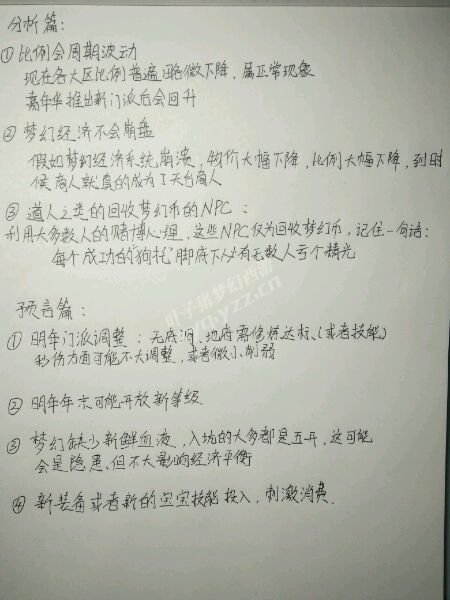 分析篇：
① 比例会周期波动
现在各大区比例普遍略微下降，属正常现象
嘉年华推出新门派后会回升
② 梦幻经济不会崩盘
假如梦幻经济系统崩溃，物价大幅下降，比例大幅下降，到时
候商人就真的成为了天台商人
③ 道人之类的回收梦幻币的NPC：
利用大多数人的赌博心理，这些NPC仅为回收梦幻币，记住一句话：
每个成功的"狗托"脚底下必有无数人亏个精光
叶子猪梦幻西游
yzz.cn
预言篇：
① 明年门派调整：无底洞、地府需修炼达标、(或者技能)
秒伤方面可能不大调整，或者微小削弱
② 明年年末可能开放新等级
③ 梦幻缺少新鲜血液，入坑的大多都是五开，这可能
会是隐患、但不大影响经济平衡
④ 新装备或者新的宝宝技能投入，刺激消费.